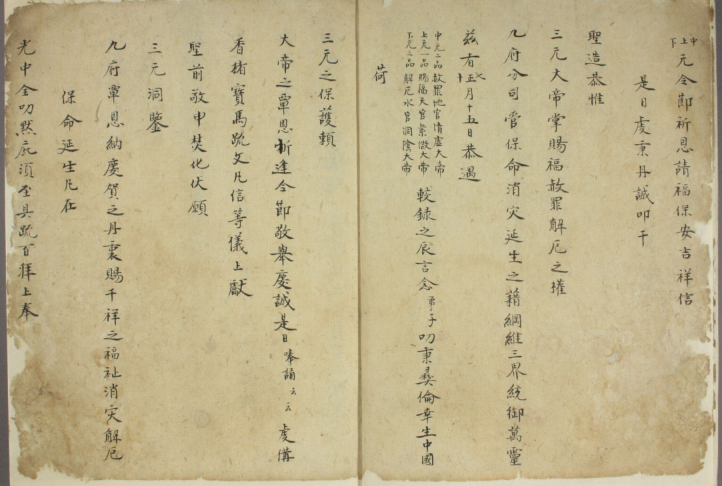 上中下元令節祈恩請福保安吉祥信
是日虔秉丹誠叩干
聖造恭惟
三元大帝掌賜福赦罪解厄之權
九府分司管保命消灾延生之籍綱維三界統御萬靈
茲有正七十月十五日恭遇
中元二品赦罪地官清虛大帝
上元一品賜福天官紫微大帝
下元三品解厄水官洞陰大帝
較錄之辰言念弟子叨秉彝倫幸生中國
荷
三元之保護賴
大帝之覃恩忻逢令節敬舉慶誠是日奉誦云云虔備
香楮寶馬疏文凡信等儀上獻
聖前敬申焚化伏願
三元洞鑒
九府覃恩納慶賀之丹衷賜千祥之福祉消灾解厄
保命延生凡在
光中全叨熙庇須至具疏百拜上奉